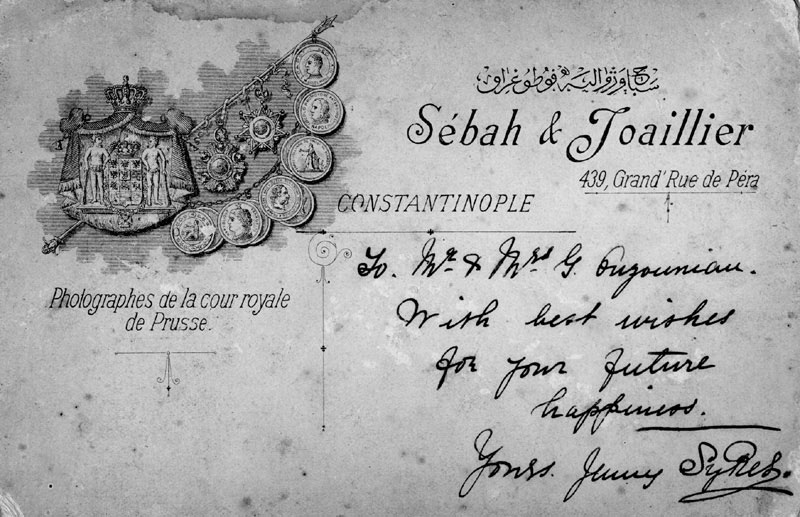 سباح و ژوالیه فوطوغراف
Sébah & Joaillier
439, Grand'Rue de Péra
CONSTANTINOPLE
Photographes de la cour royale
de Prusse.
To. Mr. & Mrs G. Ouzounian.
With best wishes
for your future
happiness.
Yours. Jenny Sykes.